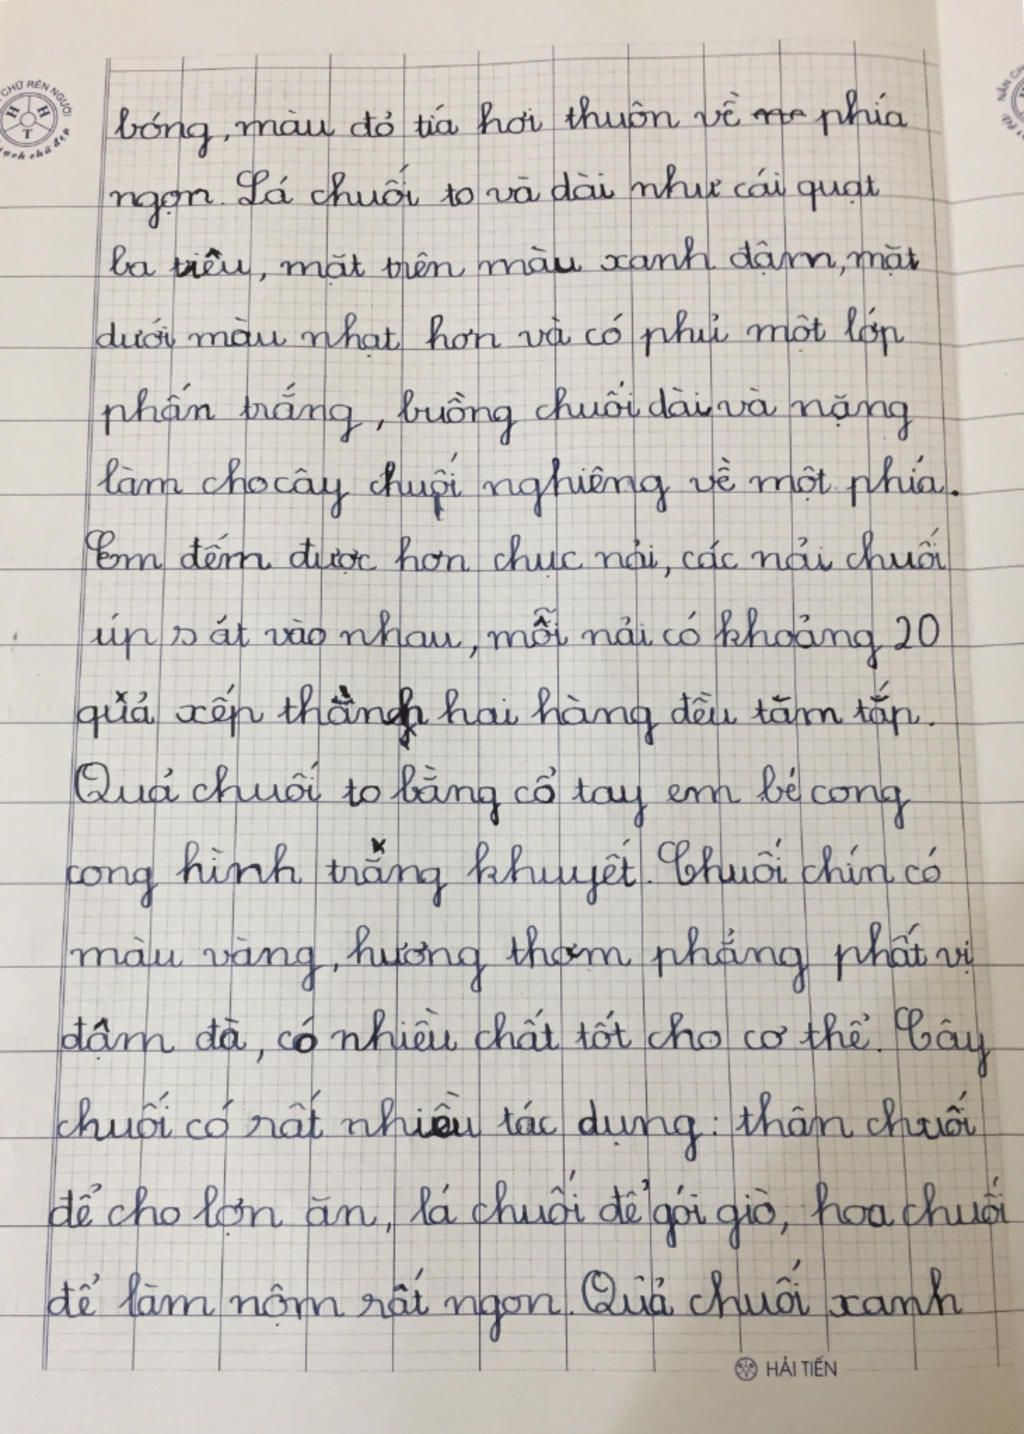 CHỮ RÈN NGƯỜI
bóng, màu đỏ tiá hơi thuôn về phía
ngọn. Lá chuối to và dài như cái quạt
ba tiêu, mặt trên màu xanh đậm, mặt
dưới màu nhạt hơn và có phủ một lớp
phấn trắng, buồng chuối dài và nặng
làm cho cây chuối nghiêng về một phía.
Em đếm được hơn chục nải, các nải chuối
úp sát vào nhau, mỗi nải có khoảng 20
quả xếp thành hai hàng đều tăm tắp.
Quả chuối to bằng cổ tay em bé cong
cong hình trăng khuyết. Chuối chín có
màu vàng, hương thơm phảng phất vị
đậm đà, có nhiều chất tốt cho cơ thể. Cây
chuối có rất nhiều tác dụng: thân chuối
để cho lợn ăn, lá chuối để gói giò, hoa chuối
để làm nộm rất ngon. Quả chuối xanh
HẢI TIẾN